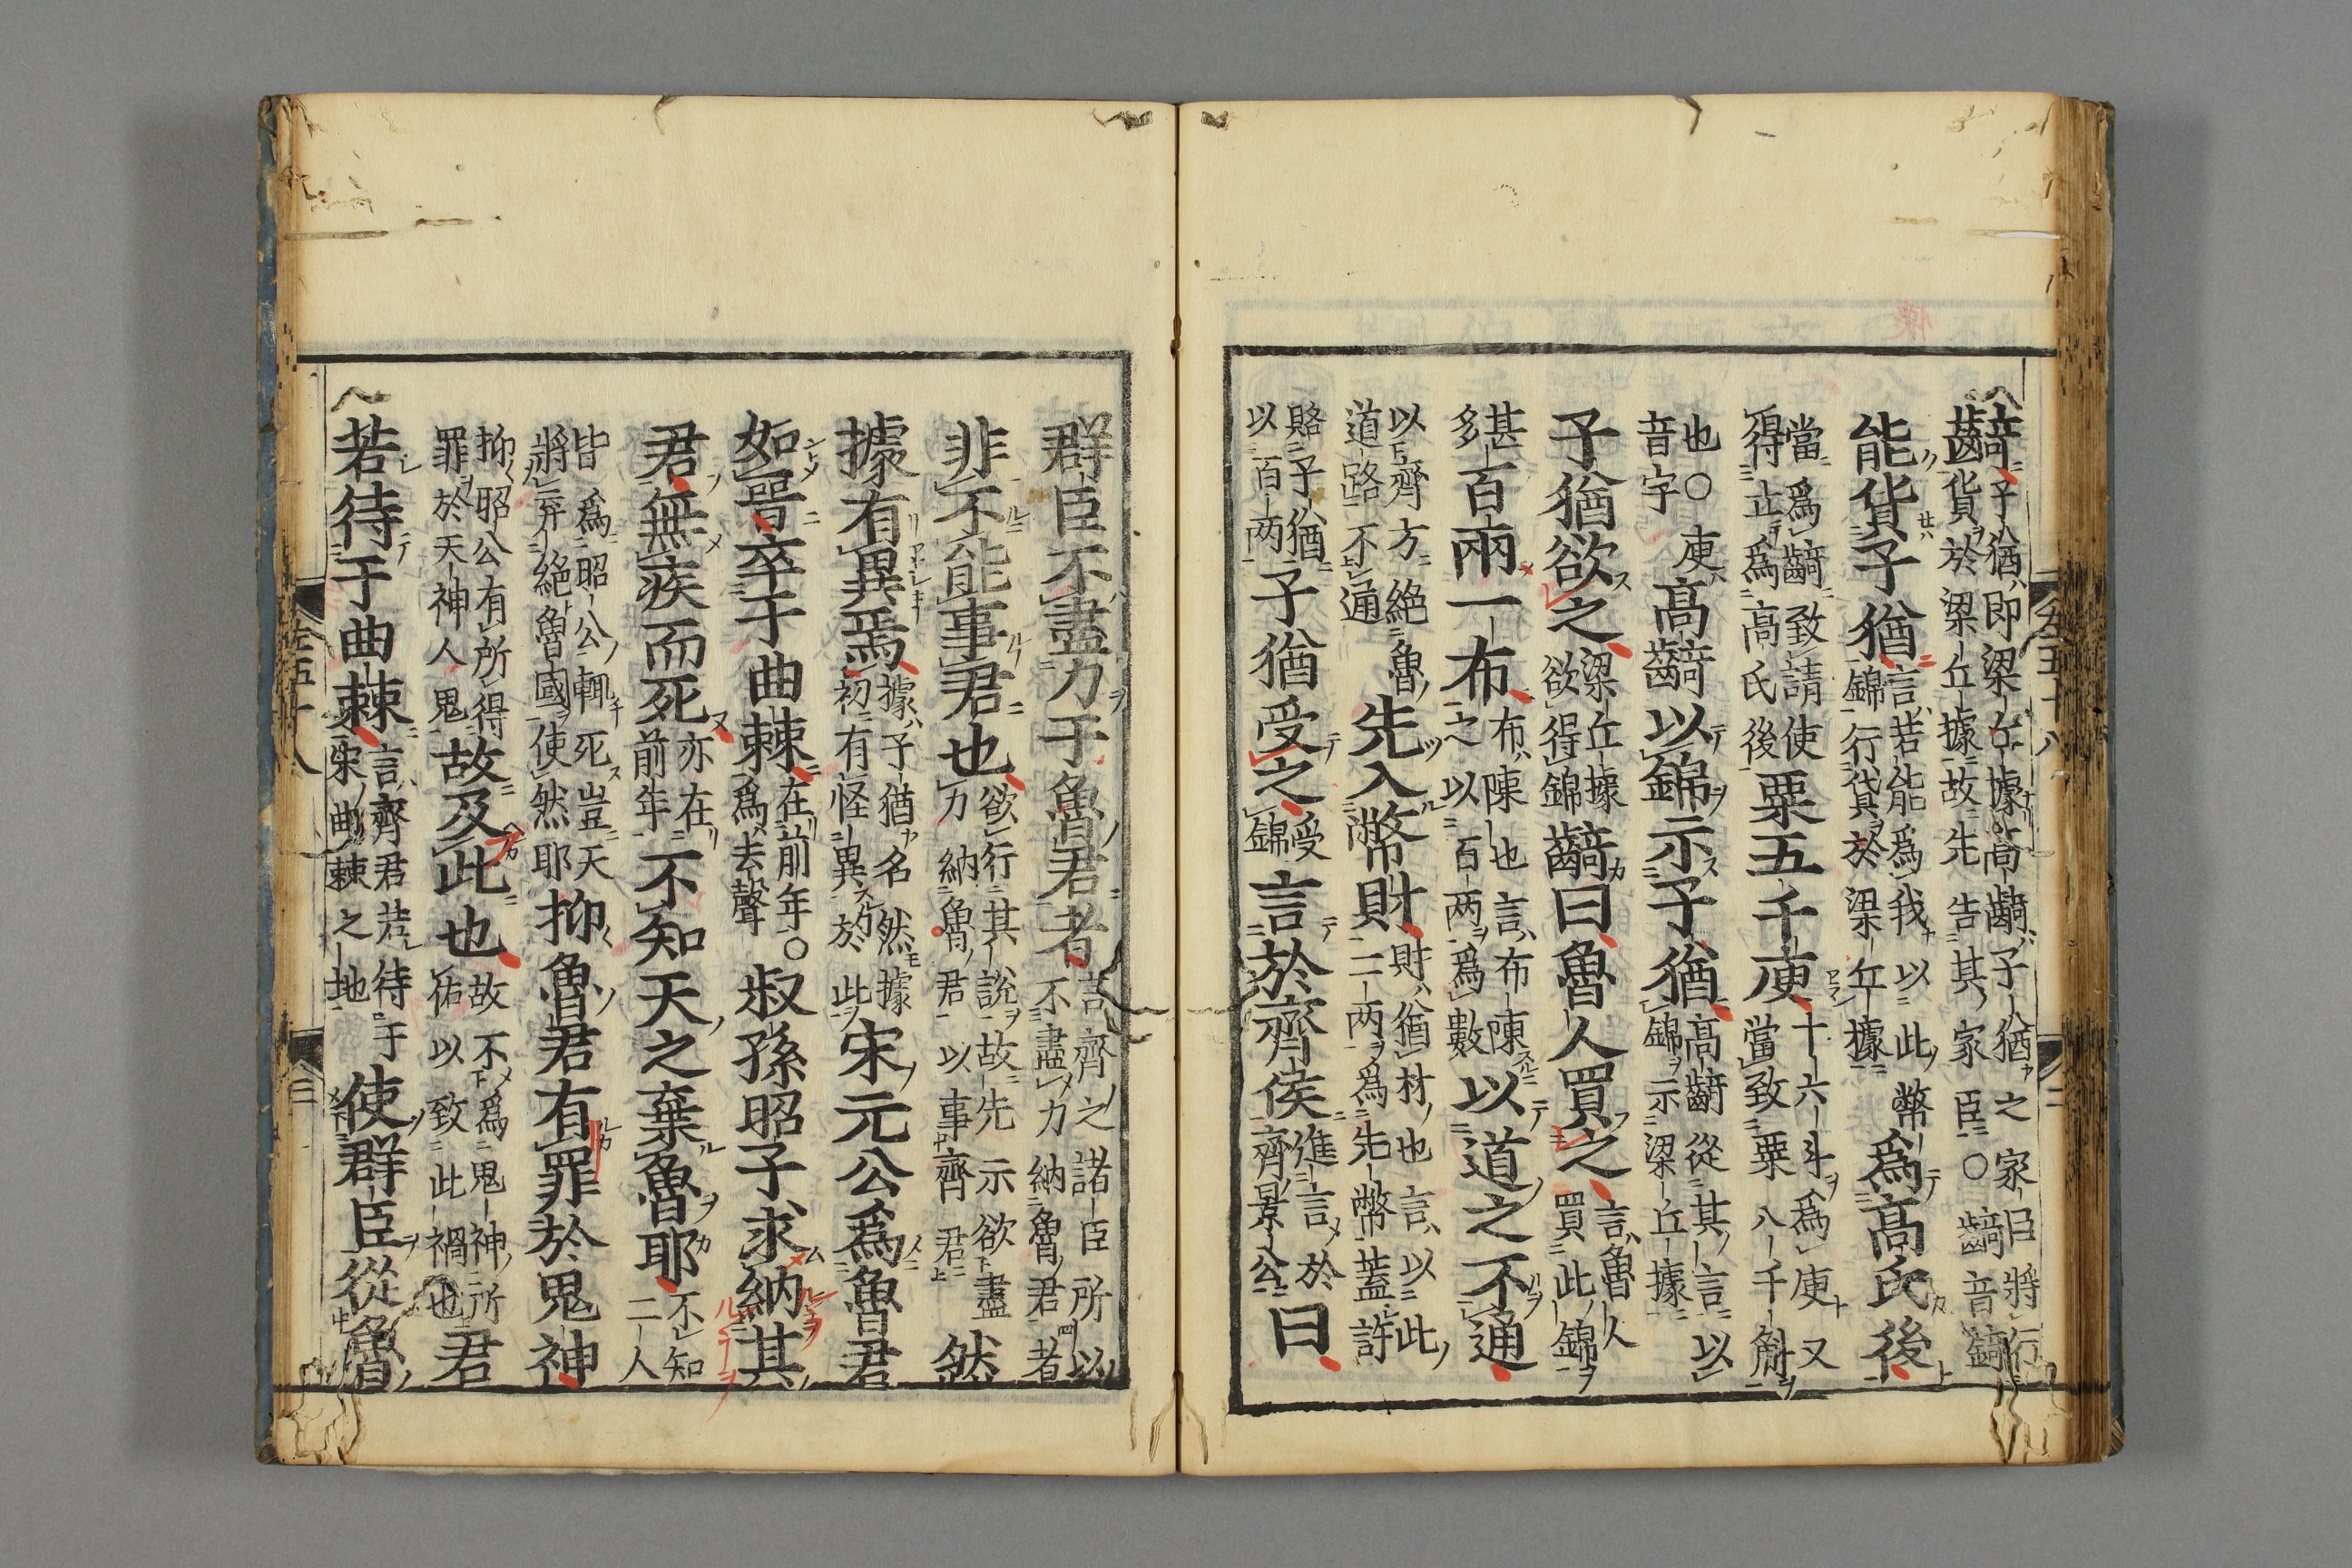 齮子猶即梁丘據高齮子猶之家臣將行貨於梁丘據故先告其家臣○齮音錡
能貨子猶言若能爲我以此幣錦行貨於梁丘據爲高氏後
當爲齮致請使得止爲高氏後粟五千庾十六斗爲庾又當致粟八千斛
也○庾音字高齮以錦示子猶高齮從其言以錦示梁丘據
子猶欲之梁丘據欲得錦齮曰魯人買之言魯人買此錦
甚多百兩一布布陳也言布陳之以百兩爲數以道之不通
以齊方絕魯道路不通先入幣財財猶材也言以此二兩爲先幣蓋許
賂子猶以百兩子猶受之受錦言於齊侯進言於齊景公曰
左五十八
二
群臣不盡力于魯君者言齊之諸臣所以不盡力納魯君者
非不能事君也欲行其說故先示欲盡力納魯君以事齊君然
據有異焉據子猶名然據初有怪異於此宋元公爲魯君
如晉卒于曲棘在前年○爲去聲叔孫昭子求納其
君無疾而死亦在前年不知天之棄魯耶不知二人
皆爲昭公輒死豈天將弃絕魯國使然耶抑魯君有罪於鬼神
抑昭公有所得罪於天神人鬼故及此也故不爲鬼神所佑以致此禍也君
若待于曲棘言齊君若待于宋曲棘之地使群臣從魯
左五十八
三